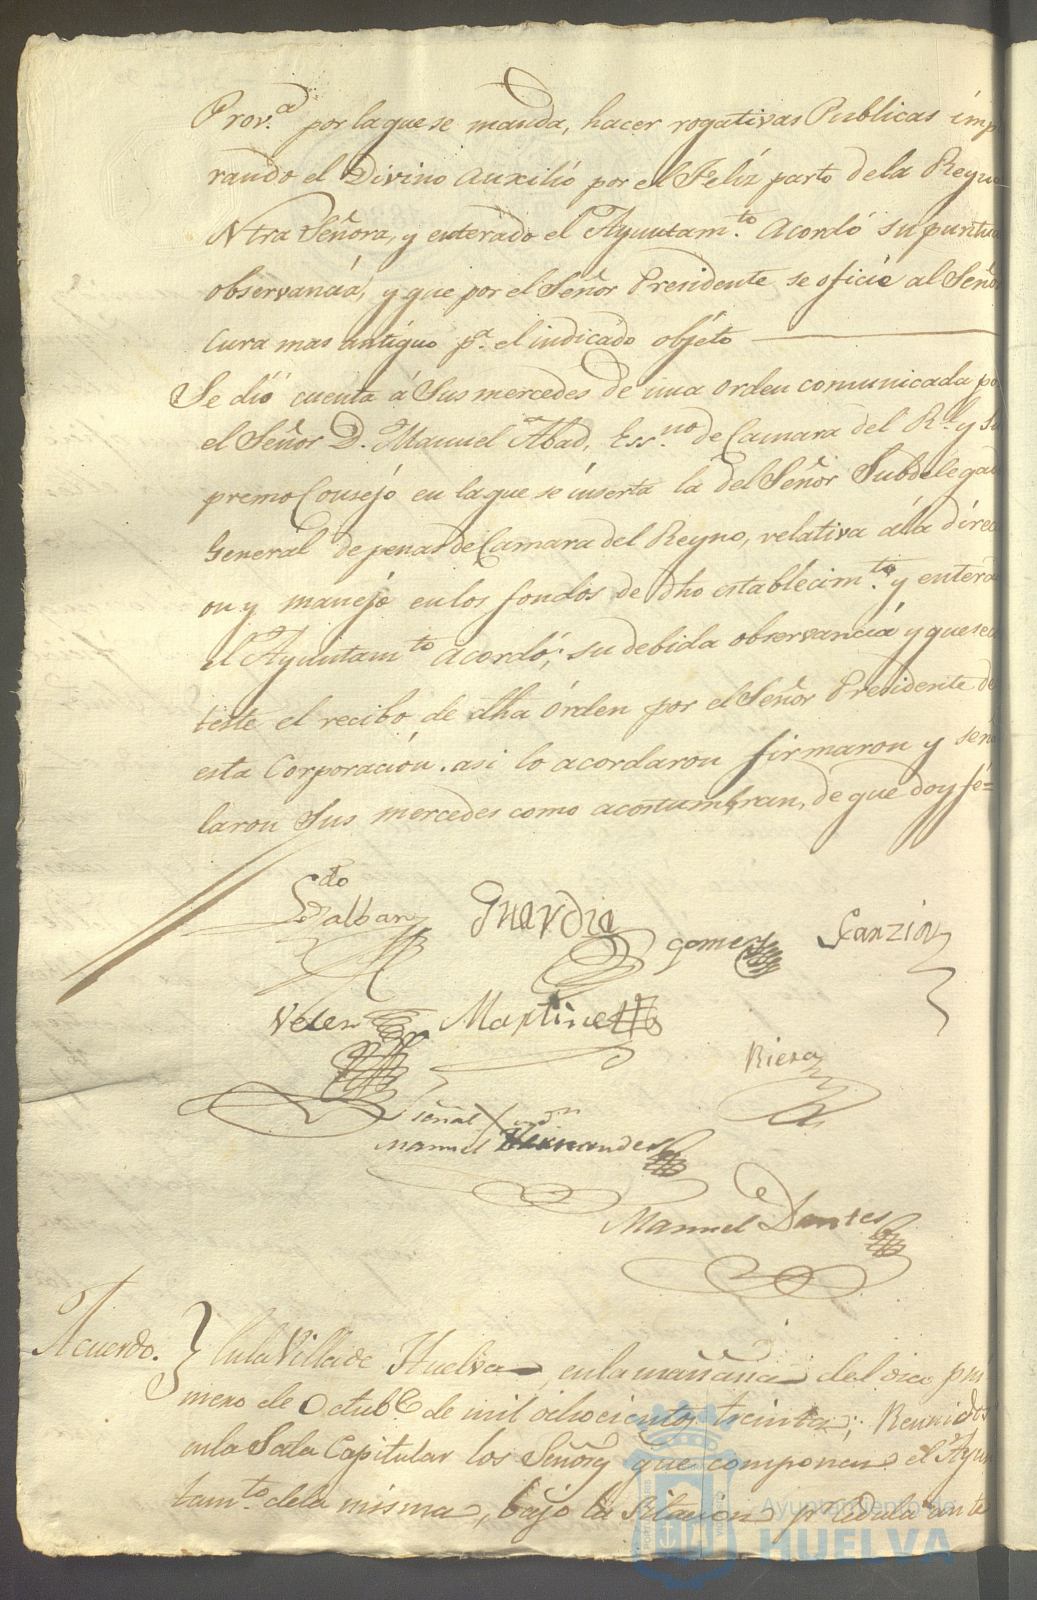 Prov.ª por la que se manda, hacer rogativas Publicas imp
rando el Divino auxilió por el Felíz parto de la Reyna
Ntra Señora, y enterado el Ayuntam.to Acordó su puntua
observancia, y que por el Señor Presidente se oficie al Señor
Cura mas antiguo p.ª el indicado objéto
Se dió cuenta á Sus mercedes de una orden comunicada po
el Señor D. Manuel Abad, Ess.no de Camara del R.l y Su
premo Consejo en la que se inserta la del Señor Subdelegad
General de penas de Camara del Reyno, relativa á la direc
on y manejo en los fondos de dho establecim.to y enterad
el Ayuntam.to acordó; su debida observancia y que se con
teste el recibo de dha órden por el Señor Presidente de
esta Corporación. asi lo acordaron firmaron y señ
laron Sus mercedes como acostumbran, de que doy fé=
Guardia Gomez
Velez Martinez
Riera
Señal X
Manuel Hernandez
Manuel Dantes
Acuerdo. En la Villa de Huelva en la mañana del dia pri
mero de Octub.e de mil ochocientos treinta; Reunidos
en la Sala Capitular los Señores que componen el Ayun
tam.to de la misma, bajo la Sitacion pr Cedula ante
Ayuntamiento de
HUELVA